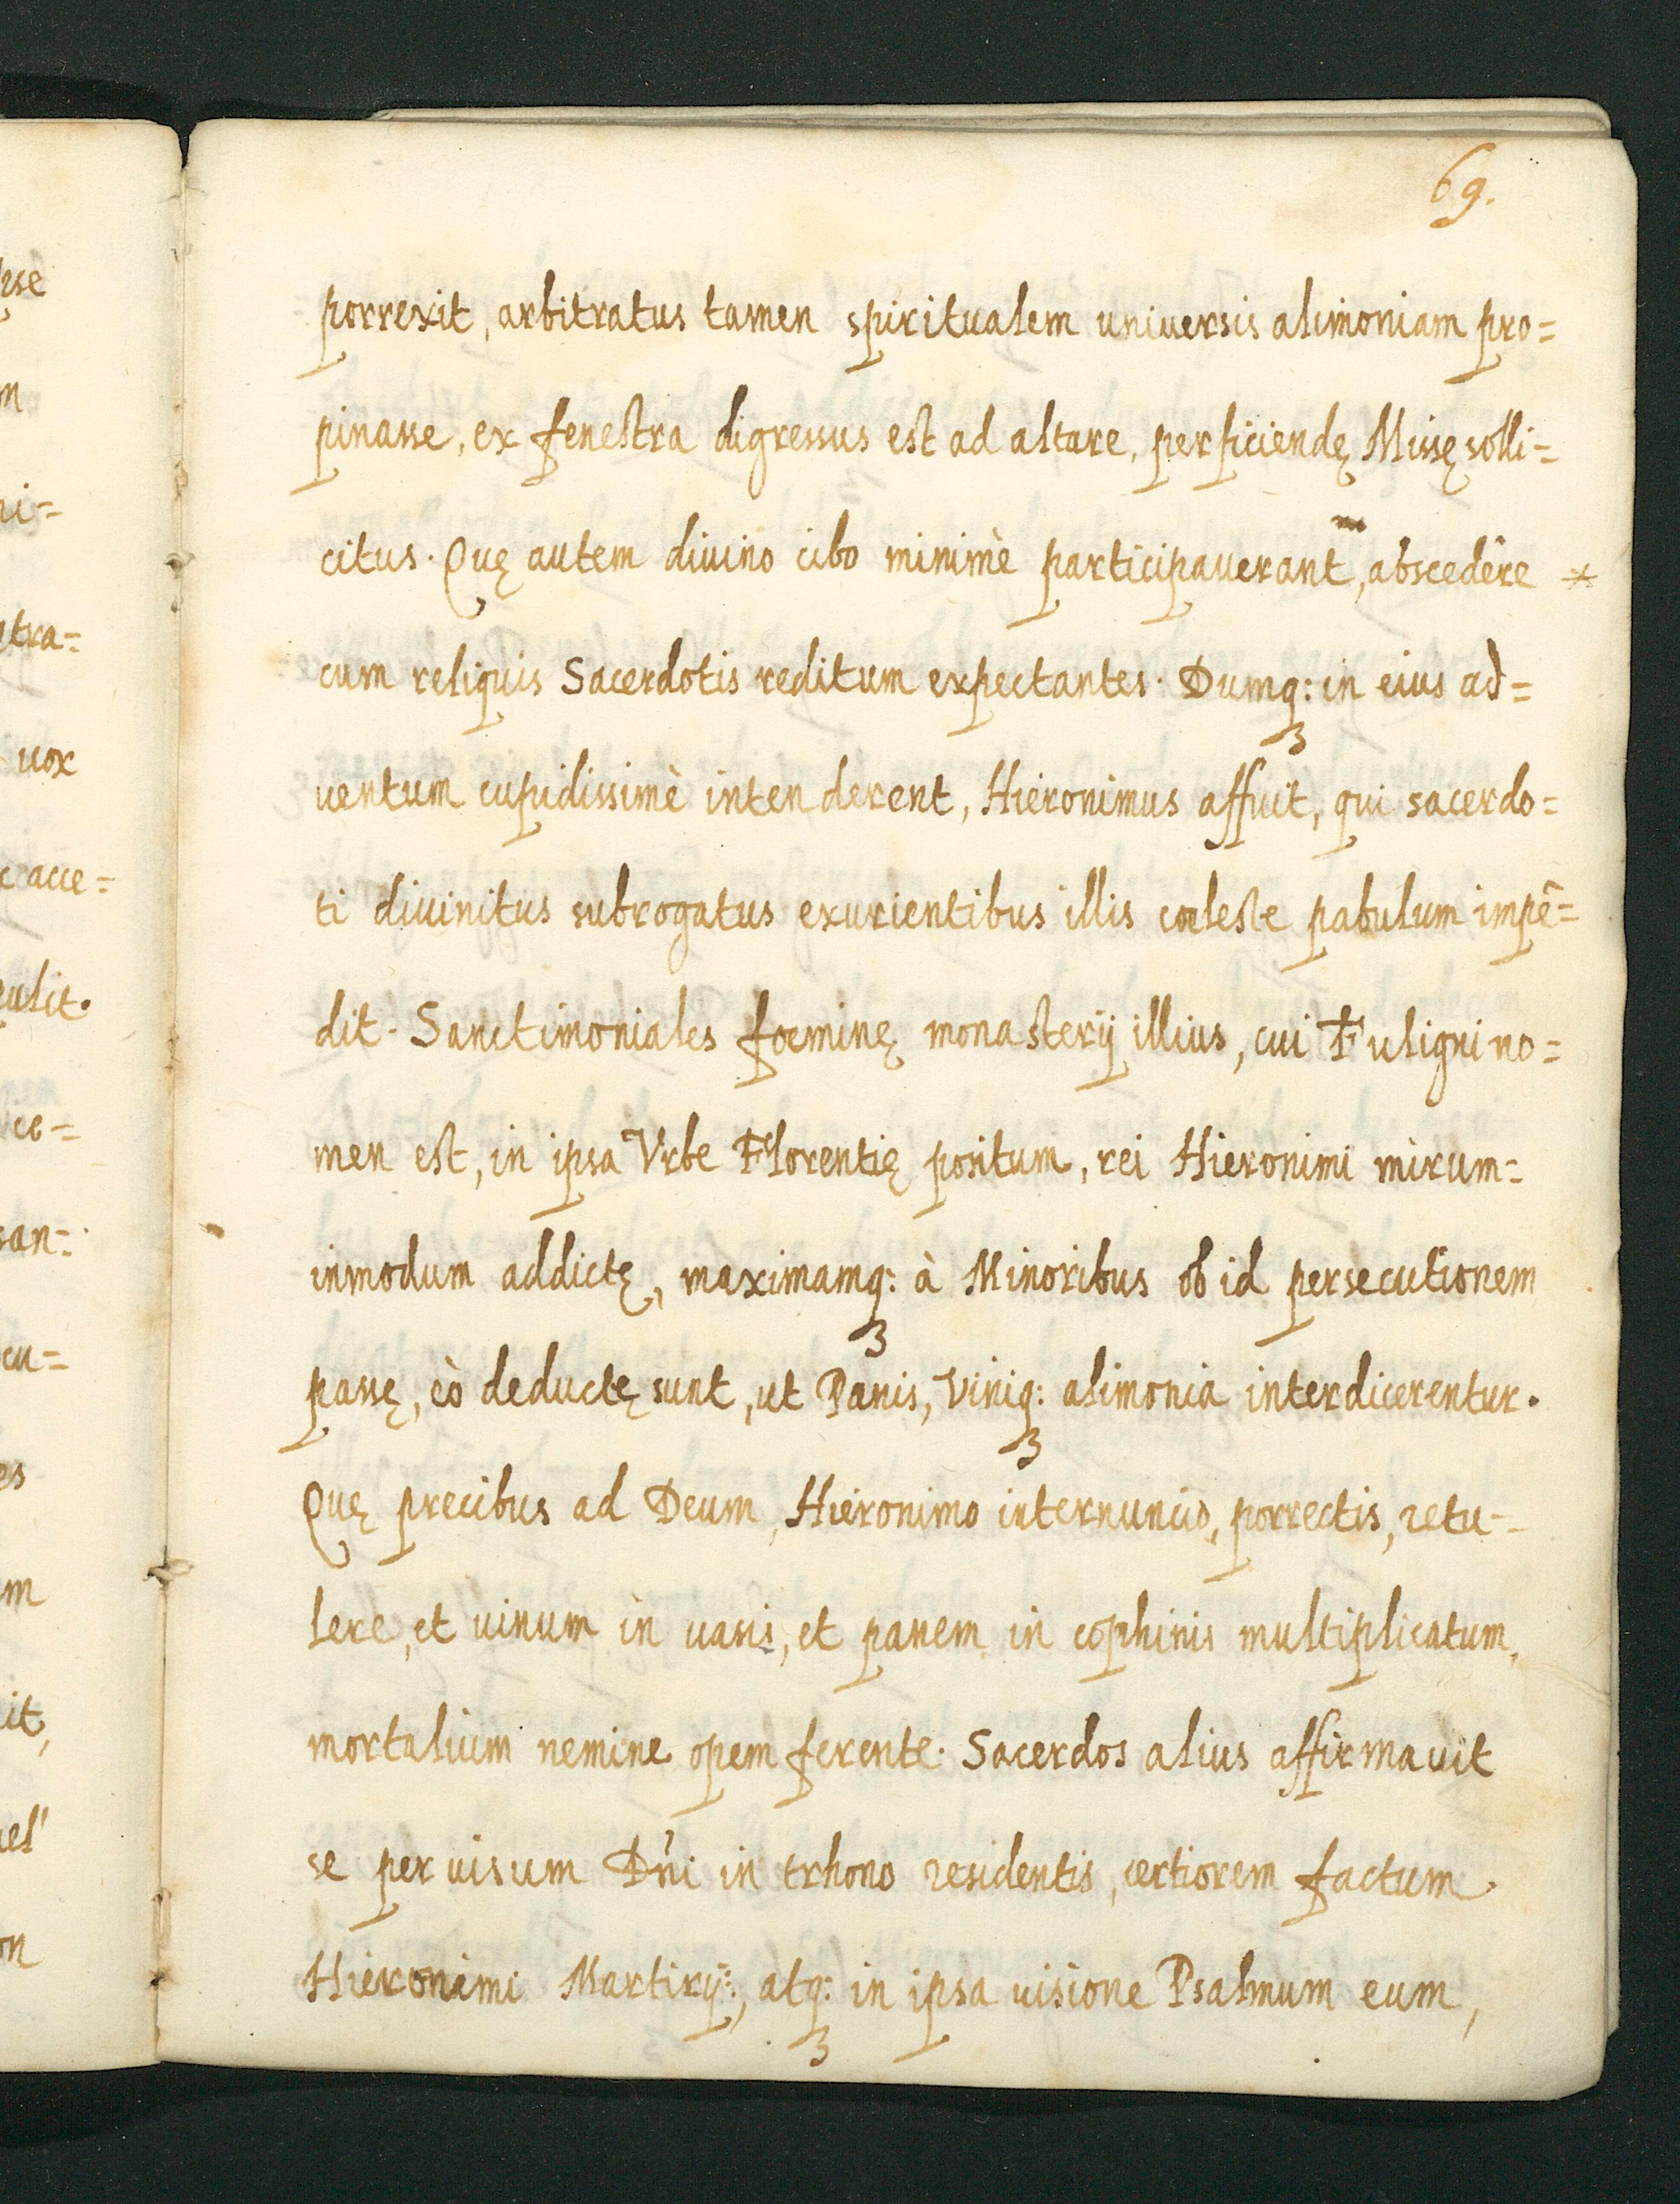 69.
porrexit, arbitratus tamen spiritualem uniuersis alimoniam pro=
pinasse, ex fenestra digressus est ad altare, perficiendę Missę solli=
citus. Quę autem diuino cibo minimè participauerant, abscedêre *
cum reliquis Sacerdotis reditum expectantes. Dumq: in eius ad=
uentum cupidissimè intenderent, Hieronimus affuit, qui sacerdo=
ti diuinitus subrogatus exurientibus illis coeleste pabulum impê=
dit. Sanctimoniales foeminę monasterij illius, cui Fuligni no=
men est, in ipsa Vrbe Florentię positum, rei Hieronimi mirum=
inmodum addictę, maximamq: à Minoribus ob id persecutionem
passę, eò deductę sunt, ut Panis, Viniq: alimonia interdicerentur.
Quę precibus ad Deum, Hieronimo internuncio, porrectis, retu=
lere, et uinum in uasis, et panem in cophinis multiplicatum,
mortalium nemine opem ferente. Sacerdos alius affirmauit
se per uisum Dn̄i in trhono residentis, certiorem factum
Hieronimi Martirij:, atq: in ipsa uisione Psalmum eum,
uox